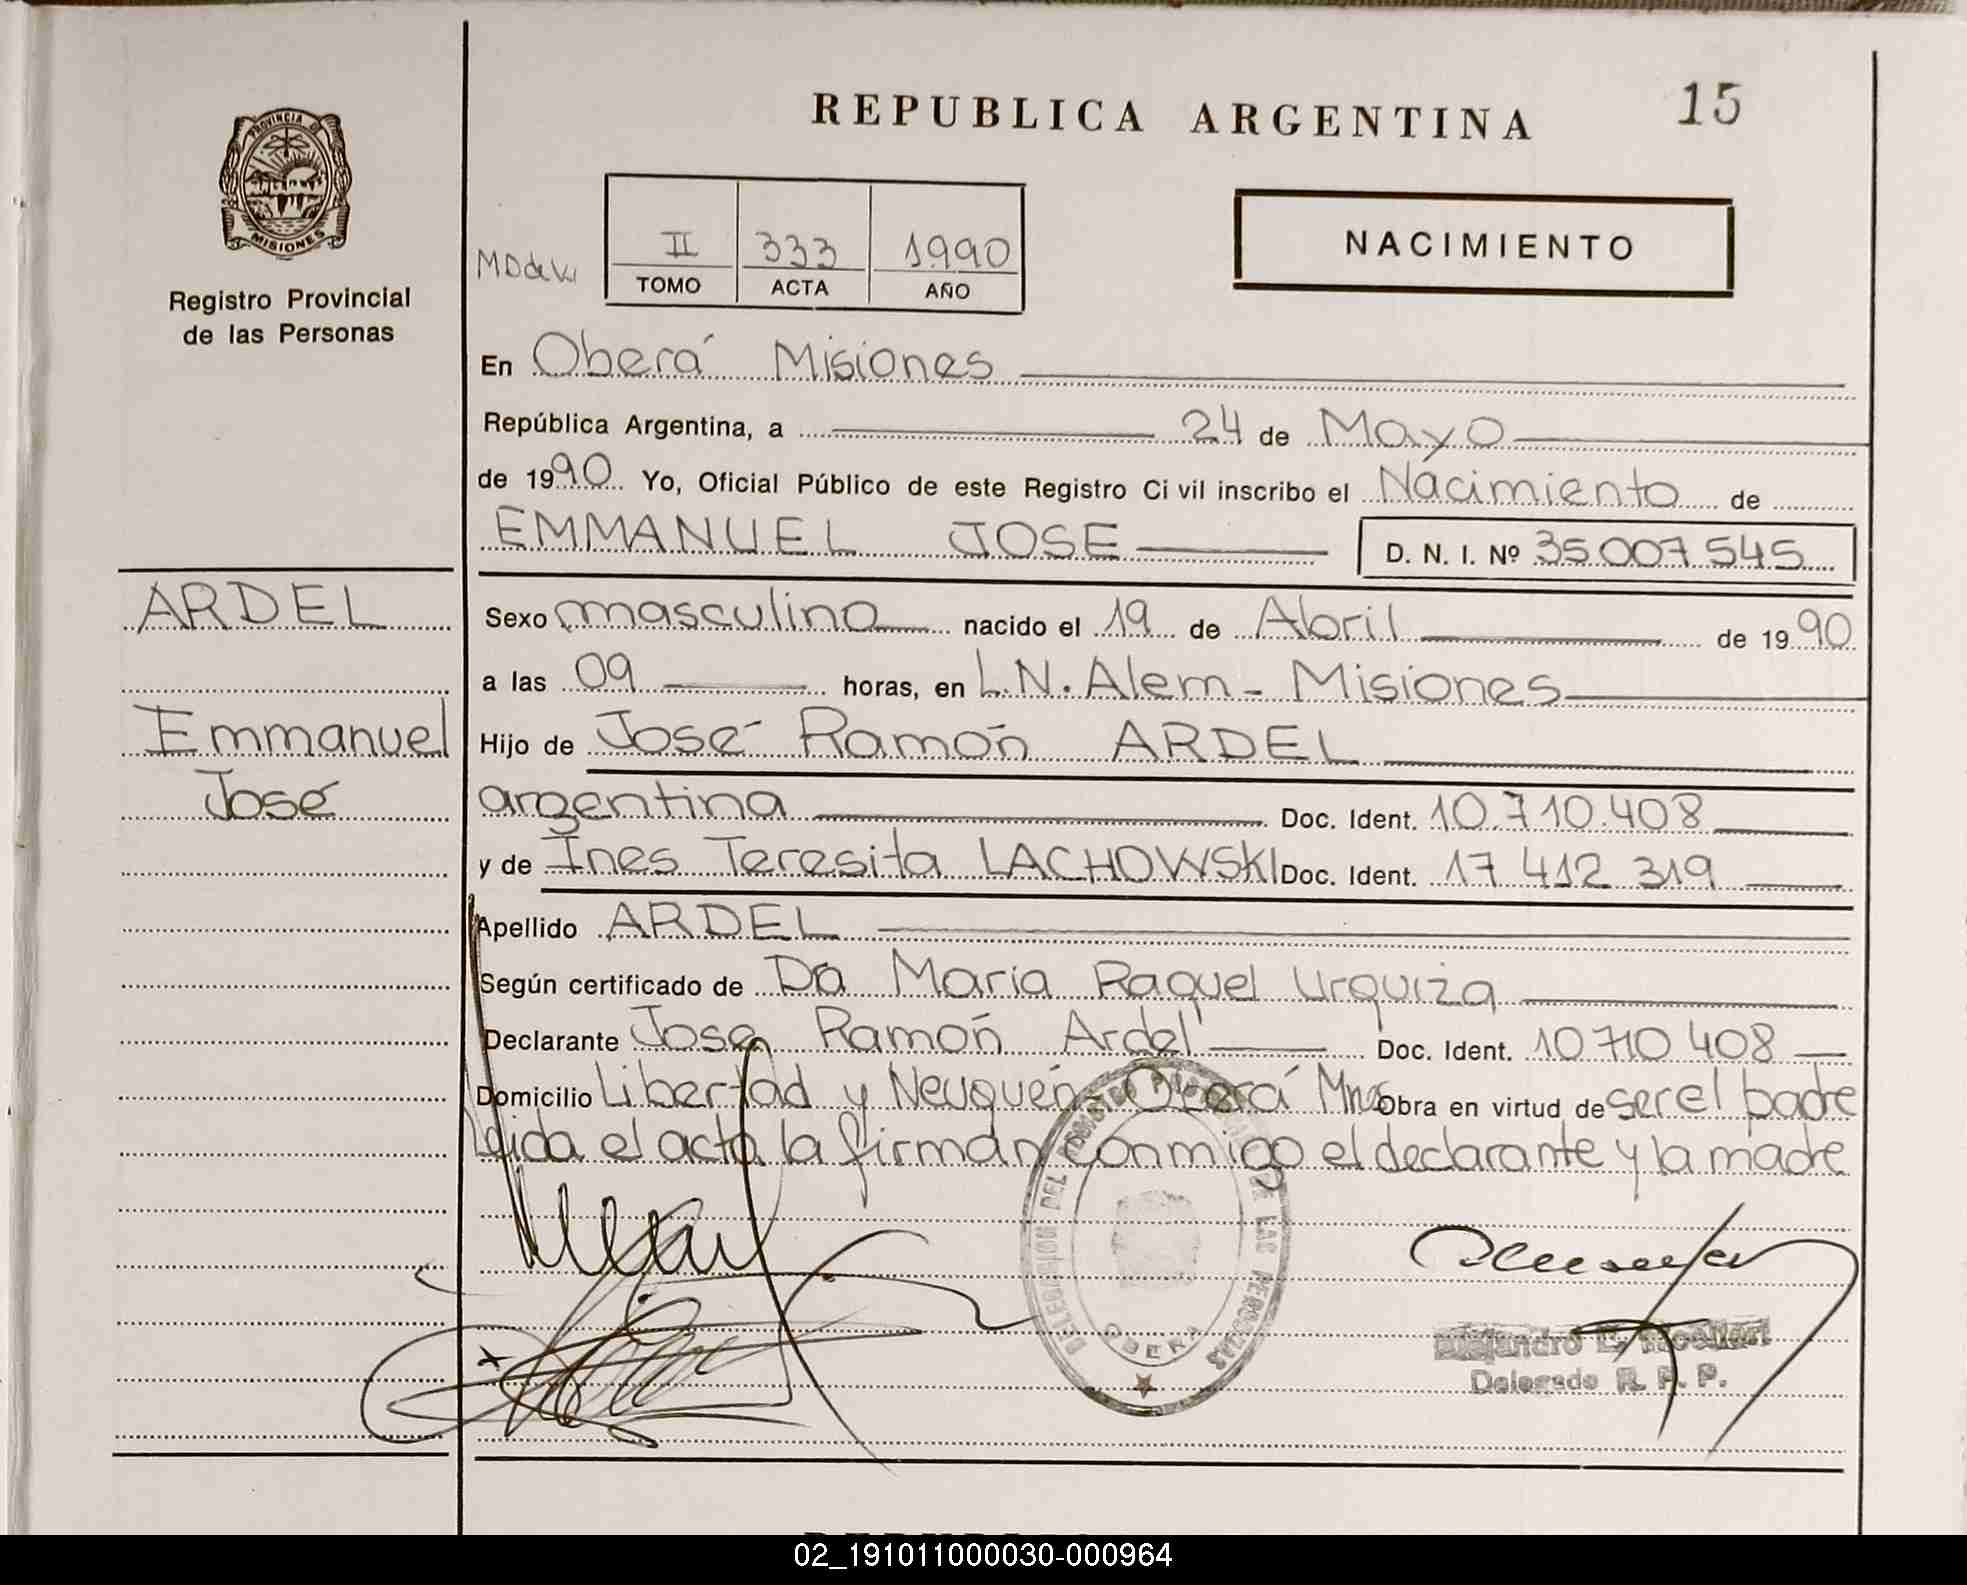 REPUBLICA ARGENTINA
15
PROVINCIA DE
MISIONES
Registro Provincial
de las Personas
II 333 1990
TOMO ACTA AÑO
NACIMIENTO
En Oberá Misiones
República Argentina, a 24 de Mayo
de 1990 Yo, Oficial Público de este Registro Ci vil inscribo el Nacimiento de
EMMANUEL JOSE D. N. I. Nº 35.007.545
ARDEL
Emmanuel
José
Sexo masculino nacido el 19 de Abril de 1990
a las 09 horas, en L.N.Alem - Misiones
Hijo de José Ramón ARDEL
argentina Doc. Ident. 10.710.408
y de Ines Teresita LACHOWSKI Doc. Ident. 17 412 319
Apellido ARDEL
Según certificado de Da Maria Raquel Urquiza
Declarante Jose Ramón Ardel Doc. Ident. 10710 408
Domicilio Libertad y Neuquén - Oberá Mnes Obra en virtud de ser el padre
Leida el acta la firman conmigo el declarante y la madre
DELEGACION DEL REGISTRO PROVINCIAL DE LAS PERSONAS
OBERA
Alejandro E.
Delegado R. P. P.
02_191011000030-000964